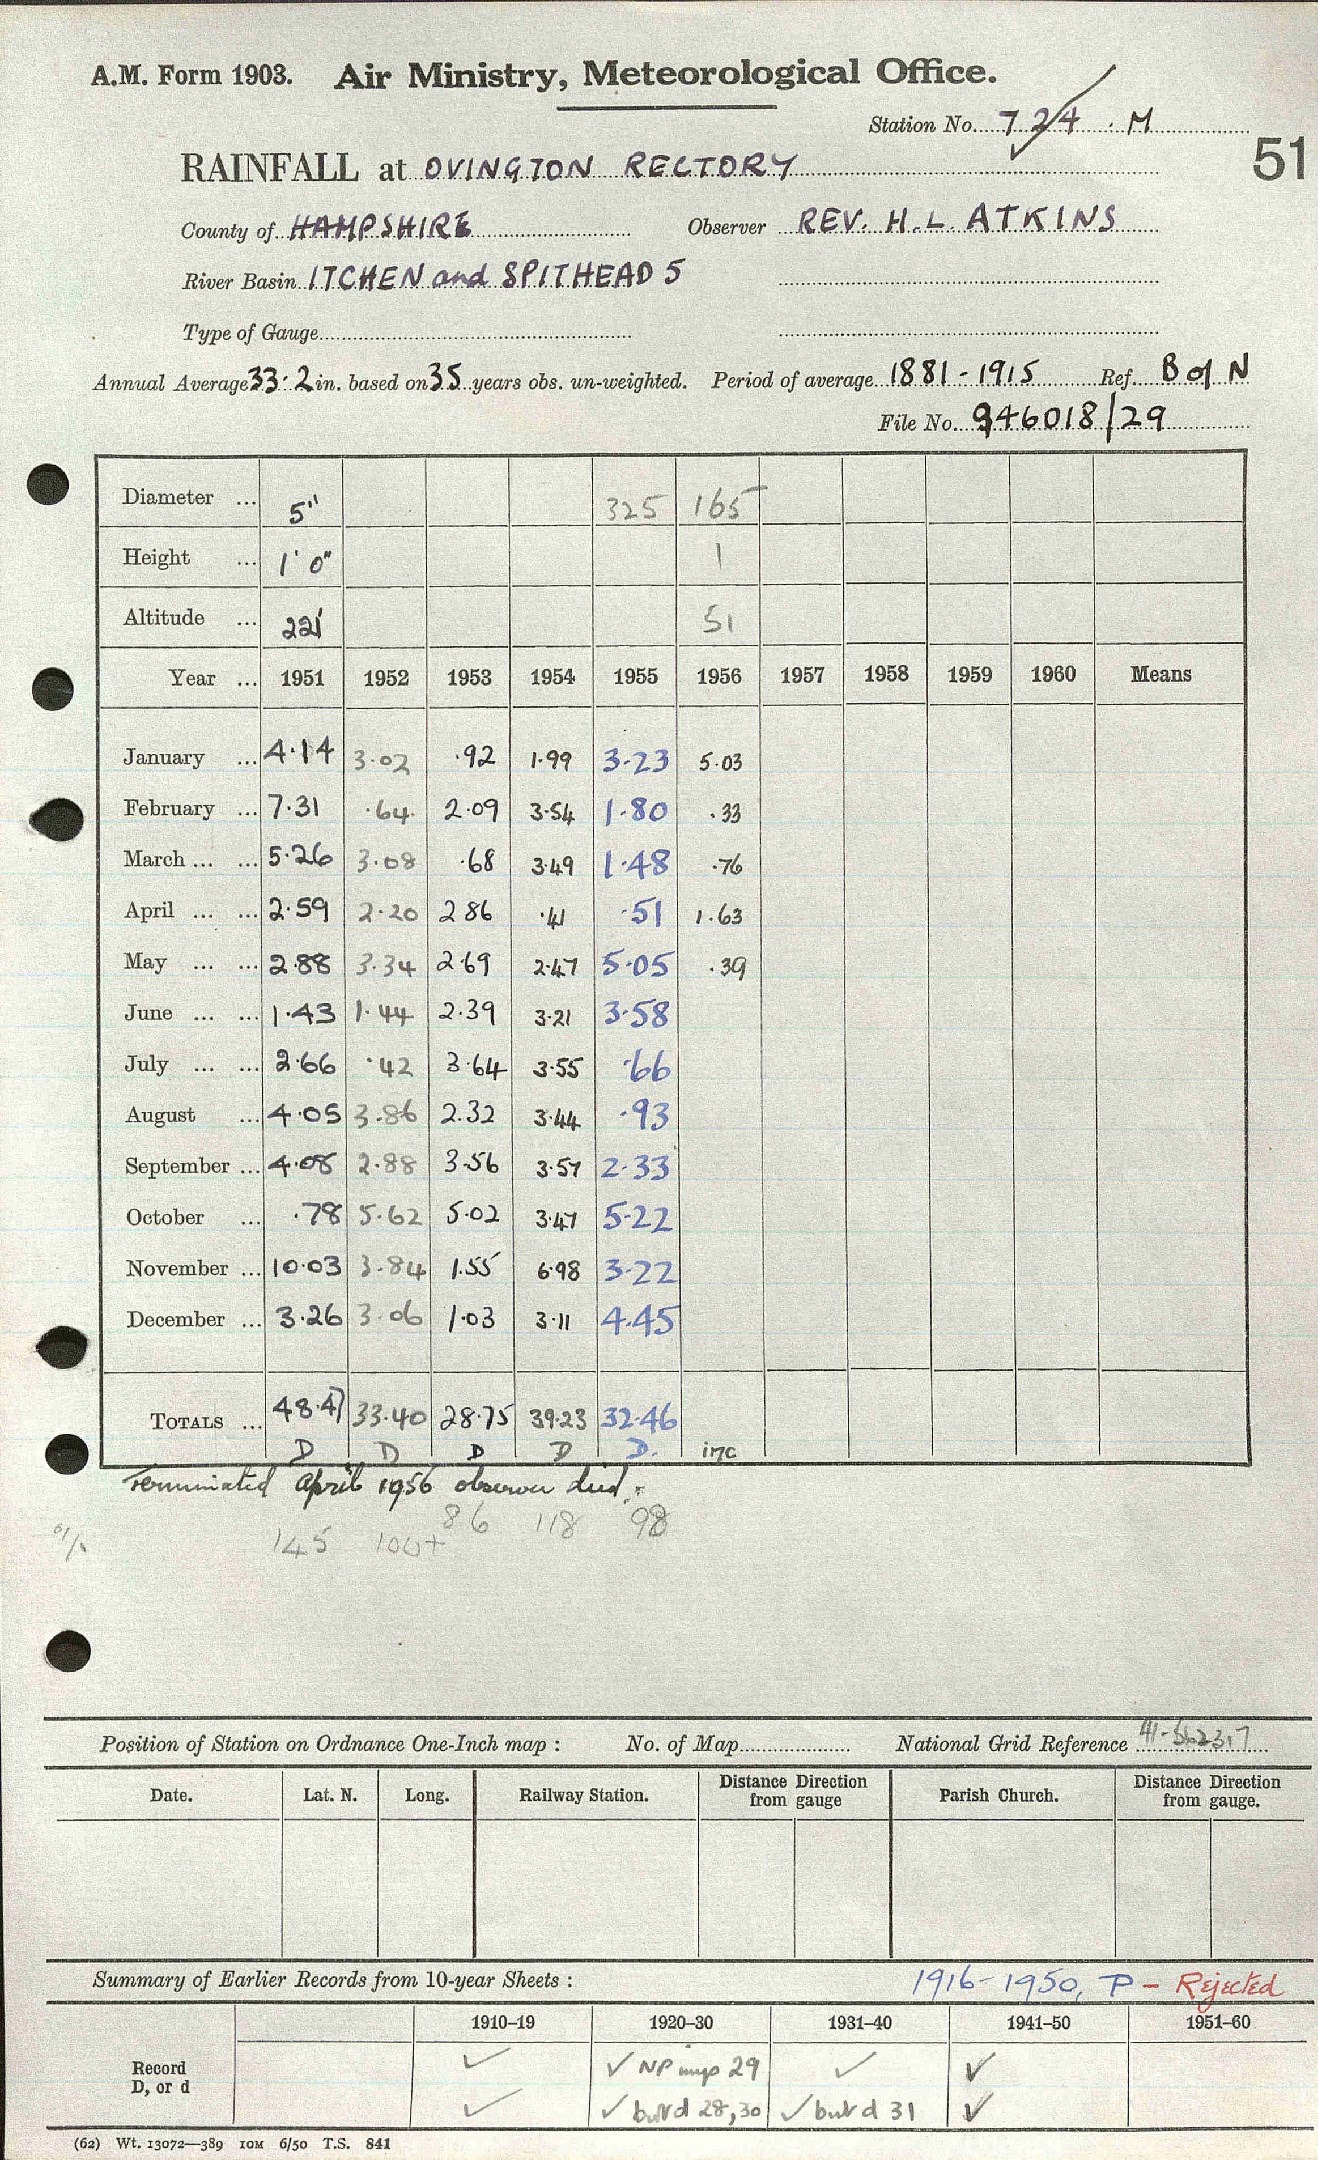 A.M. Form 1903. Air Ministry, Meteorological Office.
Station No. 724 . M
51
RAINFALL at OVINGTON RECTORY
County of HAMPSHIRE Observer REV. H.L. ATKINS
River Basin ITCHEN and SPITHEAD 5
Type of Gauge
Annual Average 33.2 in. based on 35 years obs. un-weighted. Period of average 1881-1915 Ref. B of N
File No. 946018/29
Diameter ... 5" 325 165
Height ... 1' 0" 1
Altitude ... 221' 51
Year ... 1951 1952 1953 1954 1955 1956 1957 1958 1959 1960 Means
January ... 4.14 3.02 .92 1.99 3.23 5.03
February ... 7.31 .64 2.09 3.54 1.80 .33
March ... ... 5.26 3.08 .68 3.49 1.48 .76
April ... ... 2.59 2.20 2 86 .41 .51 1.63
May ... ... 2.88 3.34 2 69 2.47 5.05 .39
June ... ... 1.43 1.44 2.39 3.21 3.58
July ... ... 2.66 .42 3.64 3.55 .66
August ... 4.05 3.86 2.32 3.44 .93
September ... 4.08 2.88 3.56 3.57 2.33
October ... .78 5.62 5.02 3.47 5.22
November ... 10.03 3.84 1.55 6.98 3.22
December ... 3.26 3.06 1.03 3.11 4.45
TOTALS ... 48.47 33.40 28.75 39.23 32.46
D D D D D. inc
Terminated April 1956 observer died.
145 100+ 86 118 98
Position of Station on Ordnance One-Inch map : No. of Map National Grid Reference 41-562317
Date. Lat. N. Long. Railway Station. Distance Direction from gauge Parish Church. Distance Direction from gauge.
Summary of Earlier Records from 10-year Sheets : 1916-1950, P - Rejected
1910–19 1920–30 1931–40 1941–50 1951–60
Record ✓ ✓ NP 29 ✓ ✓
D, or d ✓ ✓ but d 28,30 ✓ but d 31 ✓
(62) Wt. 13072—389 10M 6/50 T.S. 841